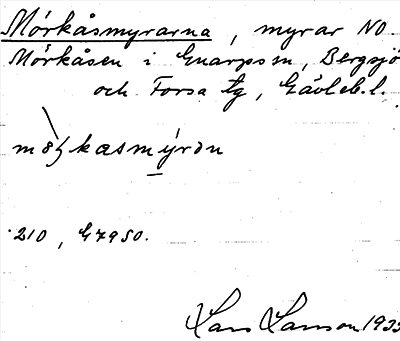 Mörkåsmyrarna, myrar NO.
Mörkåsen i Gnarps sn, Bergsjö
och Forsa tg, Gävleb. l.
210, G7950.
Lars Larsson